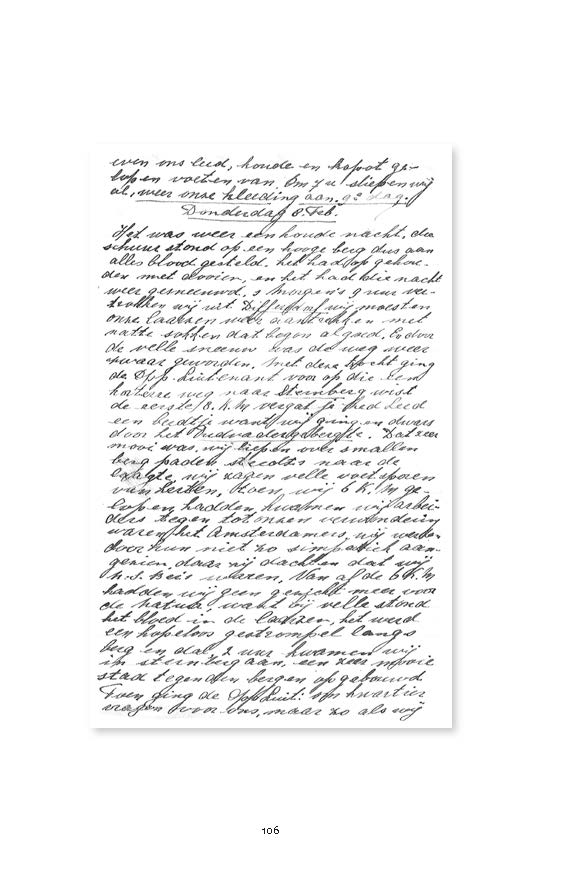 even ons leed, koude en kapot ge-
lopen voeten van. Om 7 u sliepen wij
al, weer onze kleding aan. 9e dag.
Donderdag 8 Feb.
Het was weer een koude nacht, die
schuur stond op een hooge berg dus aan
alles blood gesteld. het had op gehou-
den met dooien, en het had die nacht
weer gesneeuwd. s Morgen's 9 uur ver-
trokken wij uit wij moesten
onze laarzen weer aantrekken met
natte sokken dat begon al goed. En door
de velle sneeuw was de weg weer
zwaar geworden. Met deze tocht ging
de Opp. Luitenant voor op die een
kortere weg naar Steinberg wist
de eerste K.M vergat je het leed
een beetje want wij ging en dwars
door het gebergte. Dat zeer
mooi was, wij liepen over smallen
berg paden steedts naar de
wij zagen velle voetsporen
van herten. Toen wij 6 K.M ge-
lopen hadden, kwamen wij arbei-
ders tegen tot onzen verwondering
waren het Amsterdammers, wij werden
door hun niet zo simpatiek aan-
gezien, daar zij dachten dat wij
waren. Van af de 6 K.M
hadden wij geen gezicht meer voor
de natuur, want bij velle stond
het bloed in de laarzen, het werd
een hopeloos gestrompel langs
berg en dal, 2 uur kwamen wij
in steinberg aan, een zeer mooie
stad tegen den bergen op gebouwd
Toen ging de Opp Luit: om kwartier
vragen voor ons, maar zo als wij
106